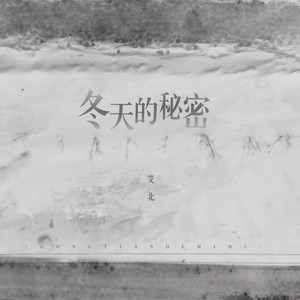 冬天的秘密
艾
北
/ DONGTIANDEMIMI /